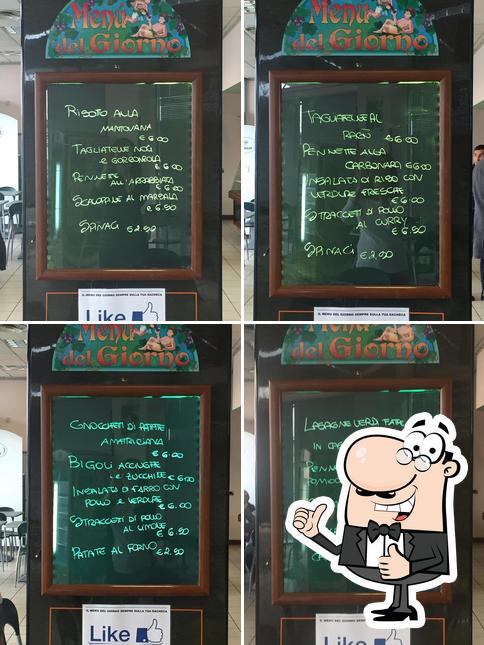 Menú
del Giorno
RISOTTO ALLA
MANTOVANA
€ 6.00
TAGLIATELLE NOCI
E GORGONZOLA
€ 6.00
PENNETTE
ALL'ARRABBIATA
€ 6.00
SCALOPPINE AL MARSALA
€ 6.90
SPINACI €2.90
IL MENÙ DEL GIORNO SEMPRE SULLA TUA BACHECA
Like
Menú
del Giorno
TAGLIATELLE AL
RAGÙ €6.00
PENNETTE ALLA
CARBONARA €6.00
INSALATA DI RISO CON
VERDURE FRESCHE
€ 6.00
STRACCETTI DI POLLO
AL CURRY
€ 6.90
SPINACI €2,90
IL MENÙ DEL GIORNO SEMPRE SULLA TUA BACHECA
Menú
del Giorno
GNOCCHETTI DI PATATE
AMATRICIANA
€ 6.00
BIGOLI ACCIUGHE
E ZUCCHINE €6.00
INSALATA DI FARRO CON
POLLO E VERDURE
€ 6.00
STRACCETTI DI POLLO
AL LIMONE
€ 6.90
PATATE AL FORNO €2.90
IL MENÙ DEL GIORNO SEMPRE SULLA TUA BACHECA
Like
Menú
del Giorno
LASAGNE VERDI
IN
IL MENÙ DEL GIORNO SEMPRE SULLA TUA BACHECA
Like